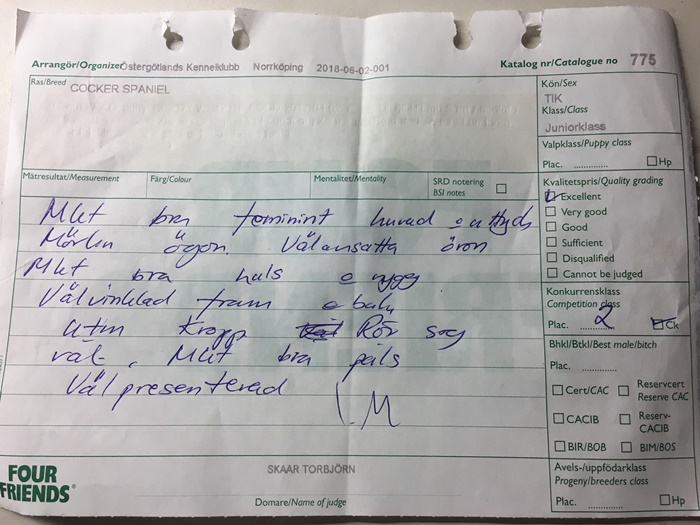 Arrangör/Organizer Östergötlands Kennelklubb Norrköping 2018-06-02-001
Katalog nr/Catalogue no 775
Ras/Breed COCKER SPANIEL
Kön/Sex
TIK
Klass/Class
Juniorklass
Valpklass/Puppy class
Plac. .............. Hp
Mätresultat/Measurement Färg/Colour Mentalitet/Mentality SRD notering
BSI notes
Kvalitetspris/Quality grading
Excellent
Very good
Good
Sufficient
Disqualified
Cannot be judged
Mkt bra feminint huvud o uttryck
Mörka ögon. Välansatta öron
Mkt bra hals o rygg
Välvinklad fram o bak
utm kropp Rör sig
väl. Mkt bra päls
Välpresenterad
Konkurrensklass
Competition class
Plac. 2 Ck
Bhkl/Btkl/Best male/bitch
Plac. ..............
Cert/CAC Reservcert
Reserve CAC
CACIB Reserv-
CACIB
BIR/BOB BIM/BOS
Avels-/uppfödarklass
Progeny/breeders class
Plac. .............. Hp
FOUR
FRIENDS®
SKAAR TORBJÖRN
Domare/Name of judge